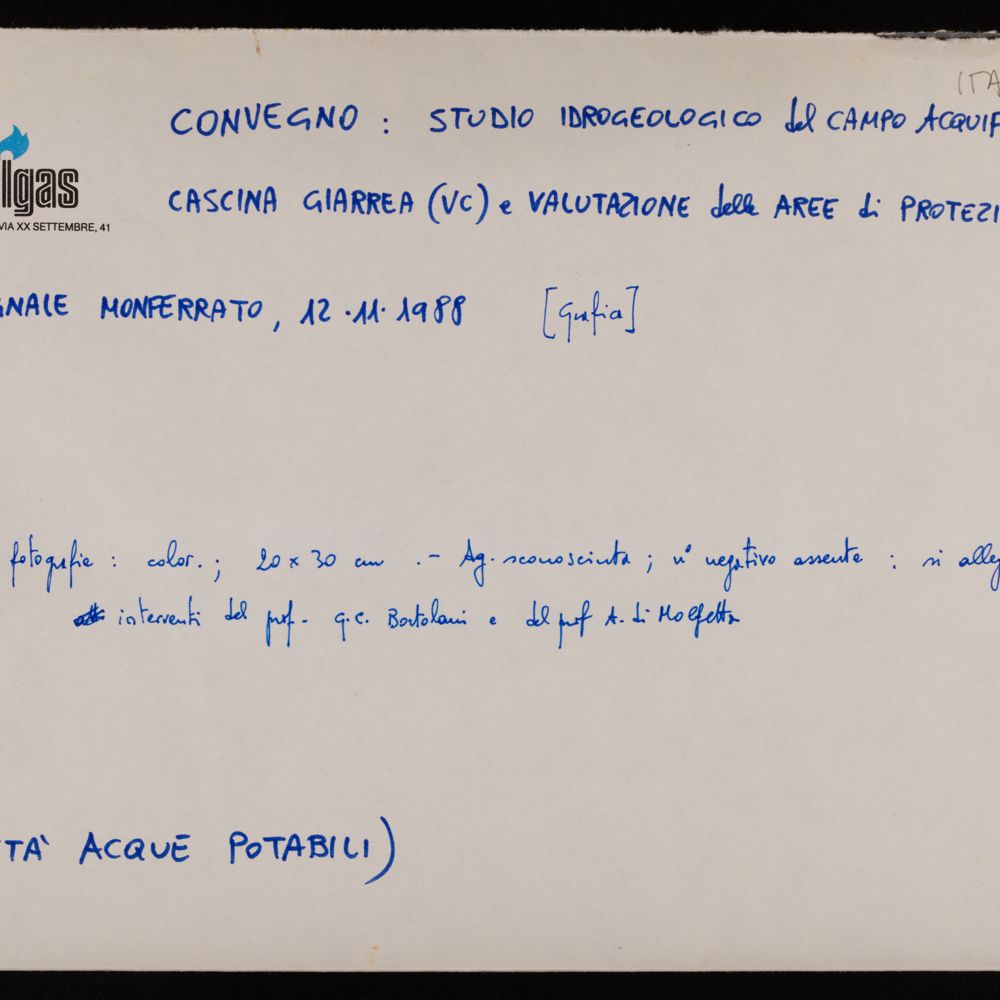 ITA
CONVEGNO : STUDIO IDROGEOLOGICO del CAMPO ACQUIF
lgas
VIA XX SETTEMBRE, 41
CASCINA GIARREA (VC) e VALUTAZIONE delle AREE di PROTEZI
GNALE MONFERRATO, 12.11.1988 [Grafia]
fotografie : color. ; 20 x 30 cm . - Ag. sconosciuta ; n° negativo assente : si alleg
interventi del prof. G.C. Bortolami e del prof A. di Molfetta
TÀ ACQUE POTABILI)